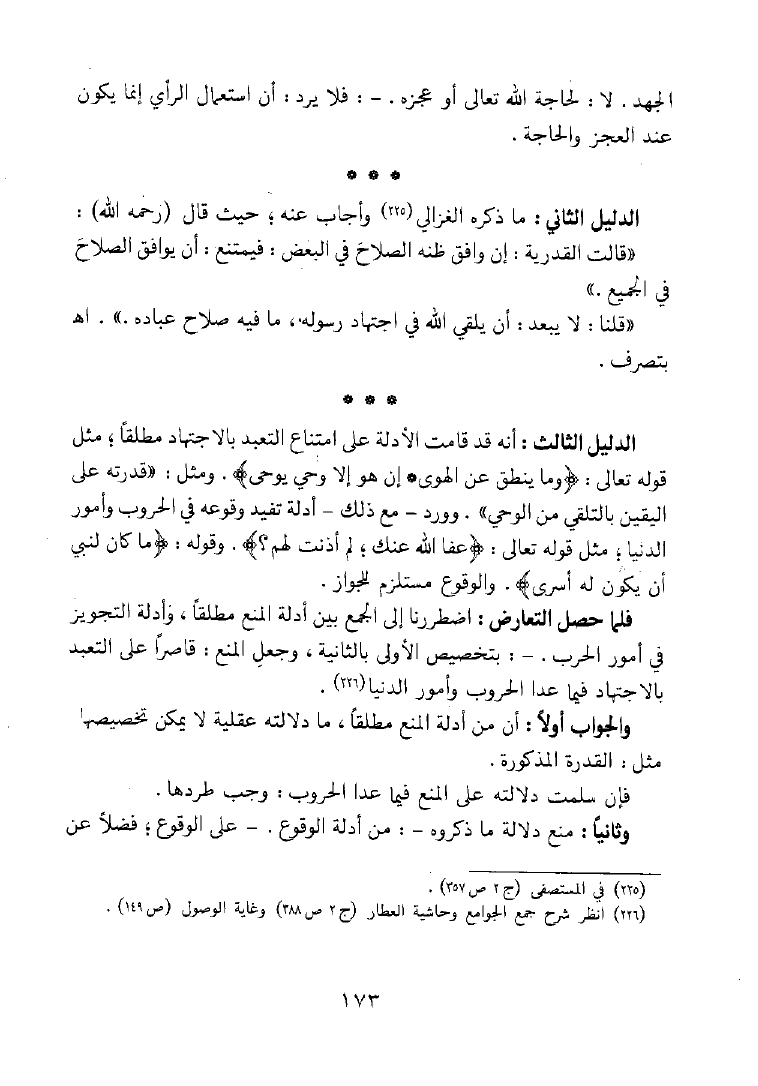 الجهد . لا : لحاجة الله تعالى أو عجزه . - : فلا يرد : أن استعمال الرأي إنما يكون
عند العجز والحاجة .
* * *
الدليل الثاني : ما ذكره الغزالي (٢٢٥) وأجاب عنه ؛ حيث قال (رحمه الله) :
«قالت القدرية : إن وافق ظنه الصلاحَ في البعض : فيمتنع : أن يوافق الصلاحَ
في الجميع .»
«قلنا : لا يبعد : أن يلقي الله في اجتهاد رسوله ، ما فيه صلاح عباده .» . اهـ
بتصرف .
* * *
الدليل الثالث : أنه قد قامت الأدلة على امتناع التعبد بالاجتهاد مطلقاً ؛ مثل
قوله تعالى : ﴿وما ينطق عن الهوى * إن هو إلا وحي يوحى﴾ . ومثل : «قدرته على
اليقين بالتلقي من الوحي» . وورد - مع ذلك - أدلة تفيد وقوعه في الحروب وأمور
الدنيا ؛ مثل قوله تعالى : ﴿عفا الله عنك ؛ لم أذنت لهم ؟﴾ . وقوله : ﴿ما كان لنبي
أن يكون له أسرى﴾ . والوقوع مستلزم للجواز .
فلما حصل التعارض : اضطررنا إلى الجمع بين أدلة المنع مطلقاً ، وأدلة التجويز
في أمور الحرب . - : بتخصيص الأولى بالثانية ، وجعلِ المنع : قاصراً على التعبد
بالاجتهاد فيما عدا الحروب وأمور الدنيا (٢٢٦) .
والجواب أولاً : أن من أدلة المنع مطلقاً ، ما دلالته عقلية لا يمكن تخصيصها
مثل : القدرة المذكورة .
فإن سلمت دلالته على المنع فيما عدا الحروب : وجب طردها .
وثانياً : منع دلالة ما ذكروه - : من أدلة الوقوع . - على الوقوع ؛ فضلاً عن
(٢٢٥) في المستصفى (ج ٢ ص ٣٥٧) .
(٢٢٦) انظر شرح جمع الجوامع وحاشية العطار (ج ٢ ص ٣٨٨) وغاية الوصول (ص ١٤٩) .
١٧٣